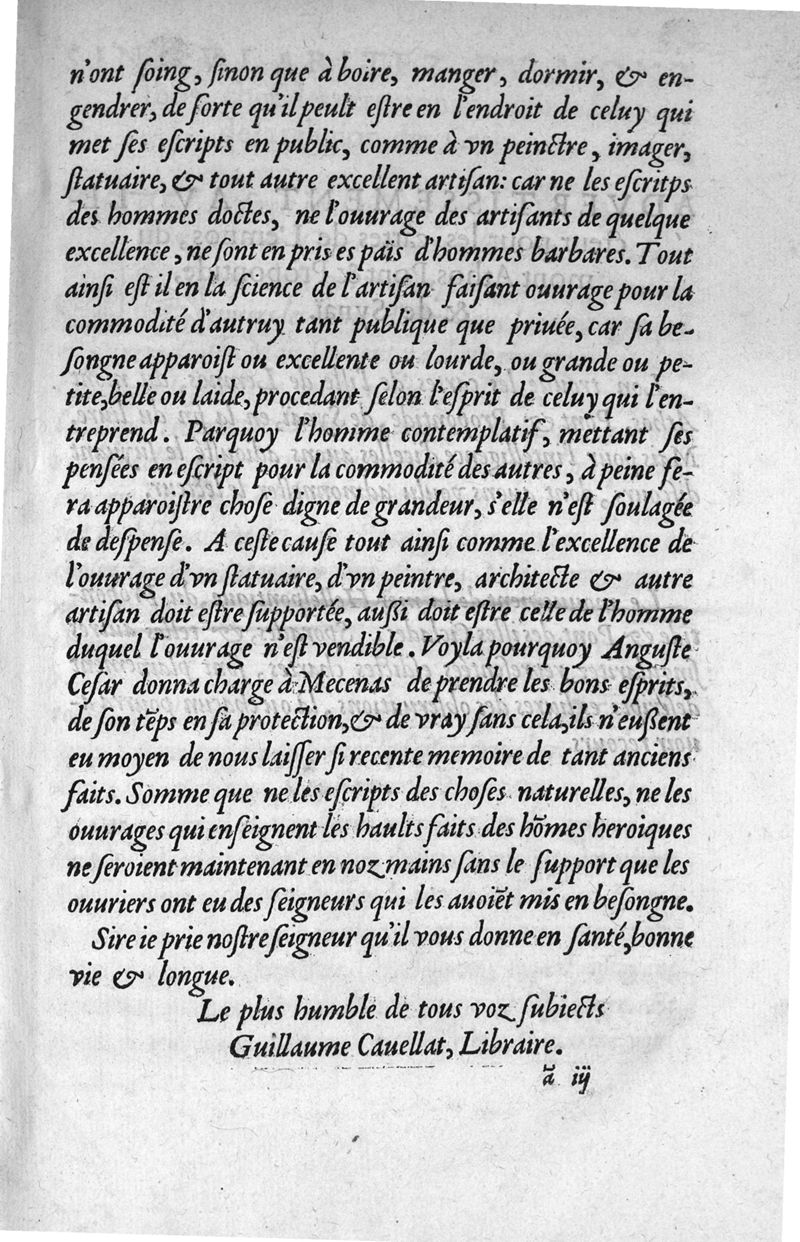 n'ont ſoing, ſinon que à boire, manger, dormir, & en-
gendrer, de ſorte qu'il peult eſtre en l'endroit de celuy qui
met ſes eſcripts en public, comme à vn peinctre, imager,
ſtatuaire, & tout autre excellent artiſan: car ne les eſcritps
des hommes doctes, ne l'ouurage des artiſants de quelque
excellence, ne ſont en pris es païs d'hommes barbares. Tout
ainſi eſt il en la ſcience de l'artiſan faiſant ouurage pour la
commodité d'autruy tant publique que priuée, car ſa be-
ſongne apparoiſt ou excellente ou lourde, ou grande ou pe-
tite, belle ou laide, procedant ſelon l'eſprit de celuy qui l'en-
treprend. Parquoy l'homme contemplatif, mettant ſes
penſées en eſcript pour la commodité des autres, à peine fe-
ra apparoiſtre choſe digne de grandeur, s'elle n'eſt ſoulagée
de deſpenſe. A ceſte cauſe tout ainſi comme l'excellence de
l'ouurage d'vn ſtatuaire, d'vn peintre, architecte & autre
artiſan doit eſtre ſupportée, außi doit eſtre celle de l'homme
duquel l'ouurage n'eſt vendible. Voyla pourquoy Anguſte
Ceſar donna charge à Mecenas de prendre les bons eſprits,
de ſon tẽps en ſa protection, & de vray ſans cela, ils n'eußent
eu moyen de nous laiſſer ſi recente memoire de tant anciens
faits. Somme que ne les eſcripts des choſes naturelles, ne les
ouurages qui enſeignent les haults faits des hõmes heroiques
ne ſeroient maintenant en noz mains ſans le ſupport que les
ouuriers ont eu des ſeigneurs qui les auoiẽt mis en beſongne.
Sire ie prie noſtre ſeigneur qu'il vous donne en ſanté, bonne
vie & longue.
Le plus humble de tous voz ſubiects
Guillaume Cauellat, Libraire.
ã iij